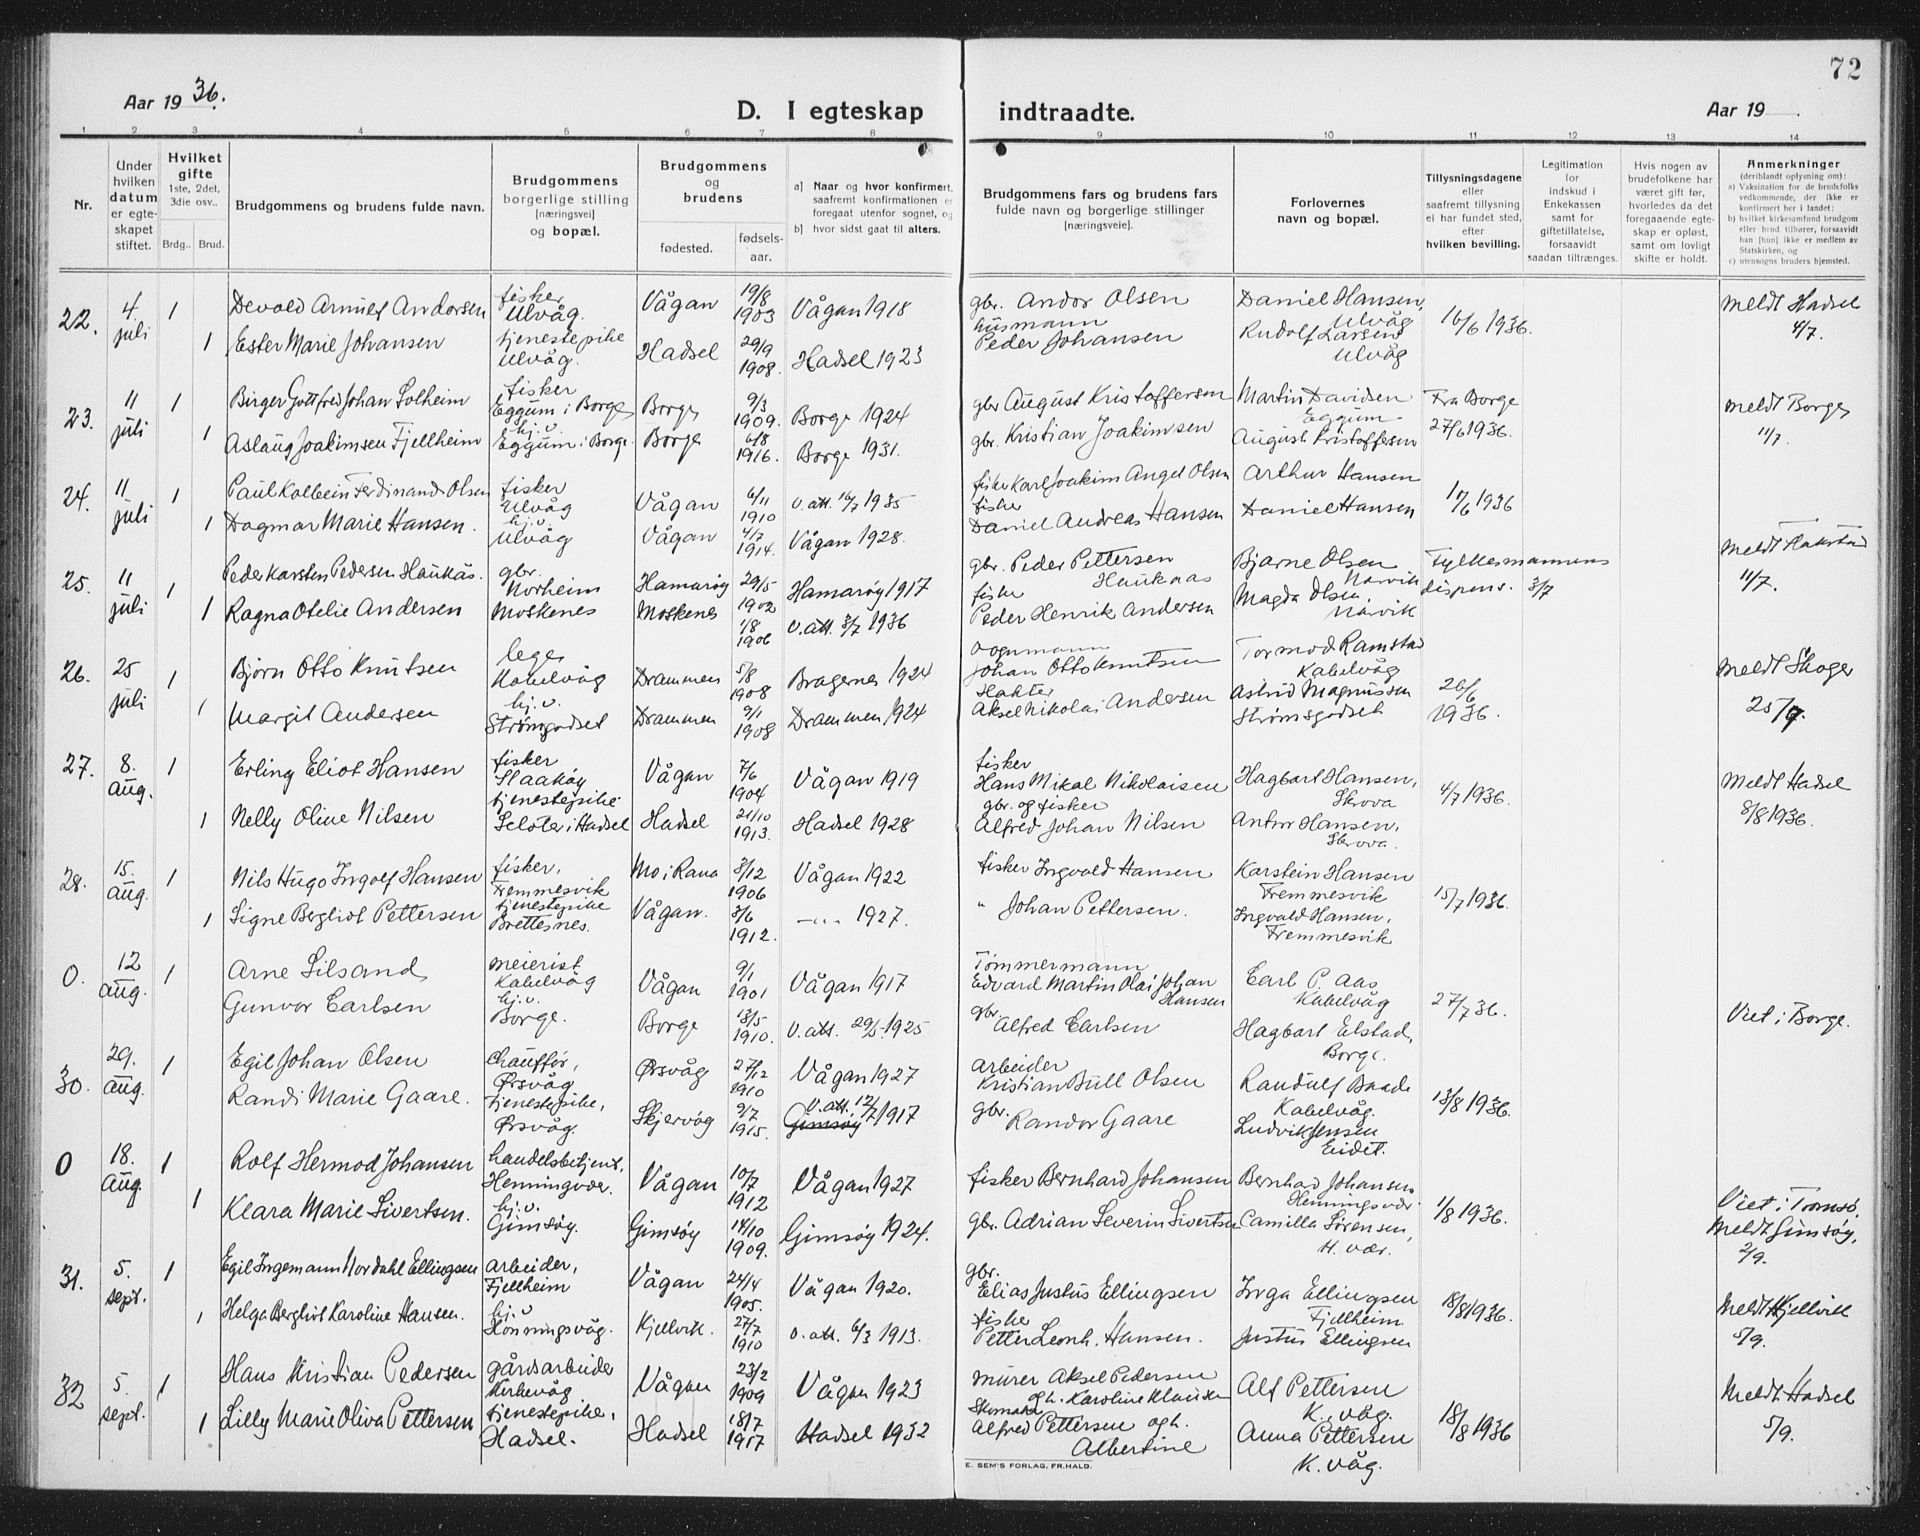 72
Aar 1936.
D. I egteskap indtraadte.
Aar 19 .
1 2 3 4 5 6 7 8 9 10 11 12 13 14
Nr.
Under hvilken datum er egteskapet stiftet.
Hvilket gifte 1ste, 2det, 3die osv..
Brdg.. Brud.
Brudgommens og brudens fulde navn.
Brudgommens borgerlige stilling [næringsvei] og bopæl.
Brudgommens og brudens
fødested. fødselsaar.
a) Naar og hvor konfirmert, saafremt konfirmationen er foregaat utenfor sognet, og
b) hvor sidst gaat til alters.
Brudgommens fars og brudens fars fulde navn og borgerlige stillinger [næringsveie].
Forlovernes navn og bopæl.
Tillysningsdagene eller saafremt tillysning ei har fundet sted, efter hvilken bevilling.
Legitimation for indskud i Enkekassen samt for giftetillatelse, forsaavidt saadan tiltrænges.
Hvis nogen av brudefolkene har været gift før, hvorledes da det foregaaende egteskap er opløst, samt om lovlig skifte er holdt.
Anmerkninger (deriblandt oplysning om):
a) Vaksination for de brudefolks vedkommende, der ikke er konfirmert her i landet;
b) hvilket kirkesamfund brudgom eller brud tilhører, forsaavidt han [hun] ikke er medlem av Statskirken, og
c) utensogns bruders hjemsted.
22. 4. juli 1 Devold Arnulf Andorsen fisker Ulvåg. Vågan 19/8 1903 Vågan 1918 gbr. Andor Olsen Daniel Hansen, Ulvåg 16/6 1936. Meldt Hadsel 4/7.
1 Ester Marie Johansen tjenestepike Ulvåg. Hadsel 29/9 1908. Hadsel 1923 husmann Peder Johansen Rudolf Larsen Ulvåg
23. 11 juli 1 Birger Gottfred Johan Solheim fisker Eggum i Borge Borge 9/3 1909. Borge 1924 gbr August Kristoffersen Martin Davidsen Eggum Fra Borge 27/6 1936. Meldt Borge 11/7.
1 Aslaug Joakimsen Fjellheim hj.v. Eggum i Borge. Borge 6/8 1916. Borge 1931. gbr. Kristian Joakimsen August Kristoffersen
24. 11 juli 1 Paul Kolbein Ferdinand Olsen fisker Ulvåg Vågan 6/11 1910 v. att. 16/7 1935 fisker Karl Joakim Angel Olsen Arthur Hansen 17/6 1936
1 Dagmar Marie Hansen. hj.v Ulvåg Vågan 4/7 1914. Vågan 1928. fisker Daniel Andreas Hansen Daniel Hansen
25. 11 juli 1 Peder Karsten Pedersen Haukås. gbr. Norheim Hamarøy 29/5 1902 Hamarøy 1917 gbr. Peder Pettersen Hauknaas Bjarne Olsen Narvik Fylkesmannens dispens. 3/7 Meldt Flakstad 11/7.
1 Ragna Otelie Andersen Moskenes Moskenes 1/8 1906 v. att. 3/7 1936 fisker Peder Henrik Andersen Magda Olsen Narvik
26. 25 juli 1 Bjørn Otto Knutsen lege Kabelvåg Drammen 5/8 1908 Bragernes 1924 vognmann Johan Otto Knutsen Tormod Ramstad Kabelvåg 20/6 1936. Meldt Skoger 25/7.
1 Margit Andersen hj.v. Strømgodset Drammen 9/1 1908 Drammen 1924 Aksel Nikolai Andersen Astrid Magnussen Strømsgodset
27. 8. aug. 1 Erling Eliot Hansen fisker Vågan 7/6 1904 Vågan 1919 fisker Hans Mikal Nikolaisen Hagbart Hansen, Skrova 4/7 1936. Meldt Hadsel 8/8 1936.
1 Nelly Oline Nilsen tjenestepike i Hadsel Hadsel 21/10 1913. Hadsel 1928 gbr. og fisker Alfred Johan Nilsen Antor Hansen, Skrova.
28. 15. aug. 1 Nils Hugo Ingolf Hansen fisker, Fremmesvik Mo i Rana 3/12 1906 Vågan 1922 fisker Ingvald Hansen Karstein Hansen Fremmesvik 15/7 1936.
1 Signe Bergliot Pettersen tjenestepike Brettesnes. Vågan. 3/6 1912. —"— 1927. " Johan Pettersen. Ingvald Hansen, Fremmesvik
0. 12 aug. 1 Arne Silsand meierist Kabelvåg Vågan 9/1 1901 Vågan 1917 Tømmermann Edvard Martin Olai Johan Hansen Carl P. Aas Kabelvåg 27/7 36. Viet i Borge.
Gunvor Carlsen hj.v. Borge. Borge 13/5 1910. v. att. 29/5 1925 gbr. Alfred Carlsen Hagbart Elstad, Borge.
30. 29. aug. 1 Egil Johan Olsen Chauffør, Ørsvåg Ørsvåg 27/12 1910 Vågan 1927 arbeider Kristian Bull Olsen Randulf Baade Kabelvåg. 13/8 1936.
Randi Marie Gaare. tjenestepike, Ørsvåg. Skjervøy 9/7 1915. v. att. 12/7 1917 Gimsøy gbr. Randor Gaare Ludvik Jensen Eidet.
0 18. aug. 1 Rolf Hermod Johansen handelsbetjent, Henningsvær. Vågan 10/7 1912 Vågan 1927 fisker Bernhard Johansen Bernhard Johansen Henningsvær 1/8 1936. Viet i Tromsø. Meldt Gimsøy, 2/9.
1 Klara Marie Sivertsen. hj.v. Gimsøy. Gimsøy 14/10 1909. Gimsøy 1924. gbr. Adrian Severin Sivertsen Camilla Sørensen, H. vær.
31. 5. sept. 1 Egil Ingemann Nordahl Ellingsen arbeider, Fjellheim Vågan 24/4 1905. Vågan 1920. gbr. Elias Justus Ellingsen Inga Ellingsen Fjellheim 18/8 1936. Meldt Kjellvik 5/9.
1 Helga Bergliot Karoline Hansen. hj.v Honningsvåg. Kjellvik. 27/7 1910 v. att. 6/3 1913. fisker Petter Leonh. Hansen. Justus Ellingsen
32 5. sept. 1 Hans Kristian Pedersen gårdsarbeider Kirkevåg Vågan 23/2 1909 Vågan 1923 murer Aksel Pedersen og h. Karoline Klausen Alf Pettersen K. våg. 18/8 1936 Meldt Hadsel 5/9.
1 Lilly Marie Oliva Pettersen tjenestepike, Hadsel. Hadsel 18/7 1917 Hadsel 1932 Alfred Pettersen og h. Albertine Anna Pettersen K. våg.
E. SEM'S FORLAG, FR.HALD.